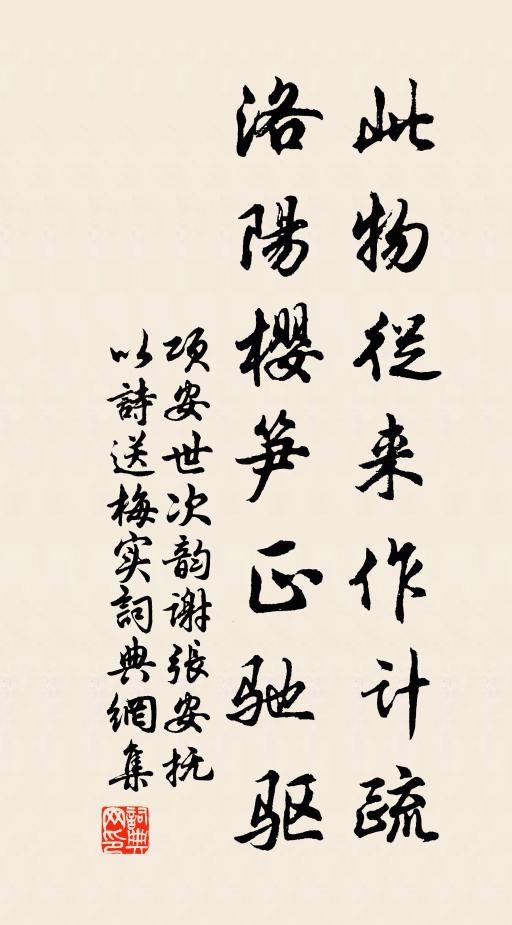 此物從来作计疏
洛陽櫻笋正驰驱
项安世次韵谢張安抚
以詩送梅实詞典網集
詞典網印